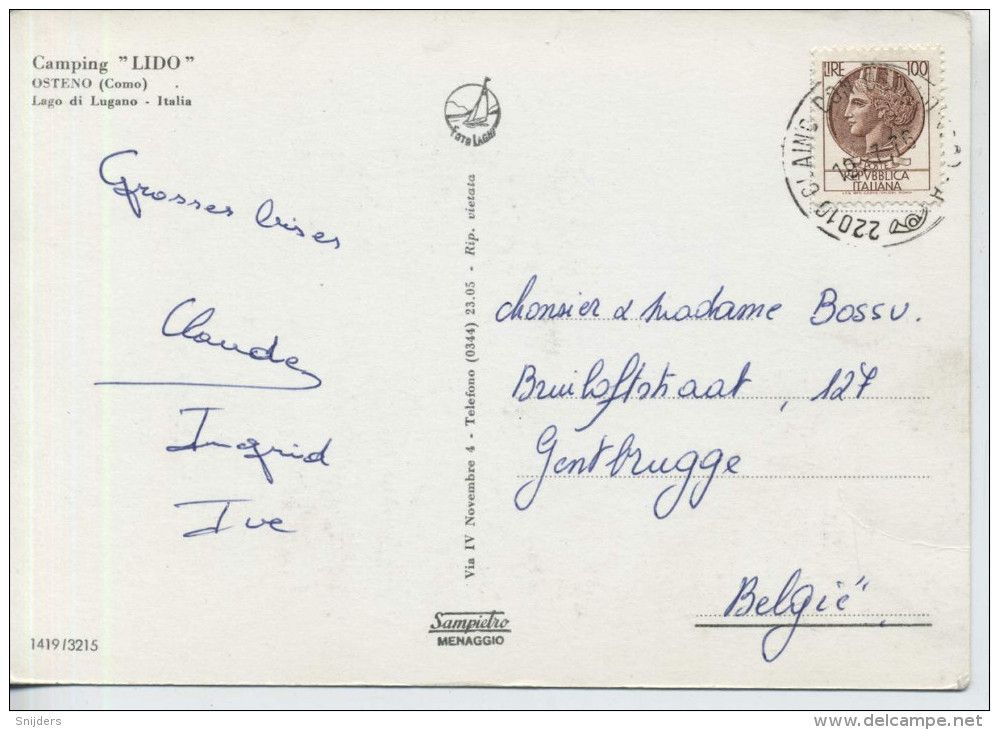 Camping "LIDO"
OSTENO (Como)
Lago di Lugano - Italia
Grosses bises
Claude
Ingrid
Ive
1419/3215
FOTO LAGHI
Via IV Novembre 4 - Telefono (0344) 23.05 - Rip. vietata
Sampietro
MENAGGIO
LIRE 100
POSTE
REPVBBLICA
ITALIANA
22010 CLAINO CON
Monsier & Madame Bossu.
Bruiloftstraat, 127
Gentbrugge
België
Snijders
delcampe.net